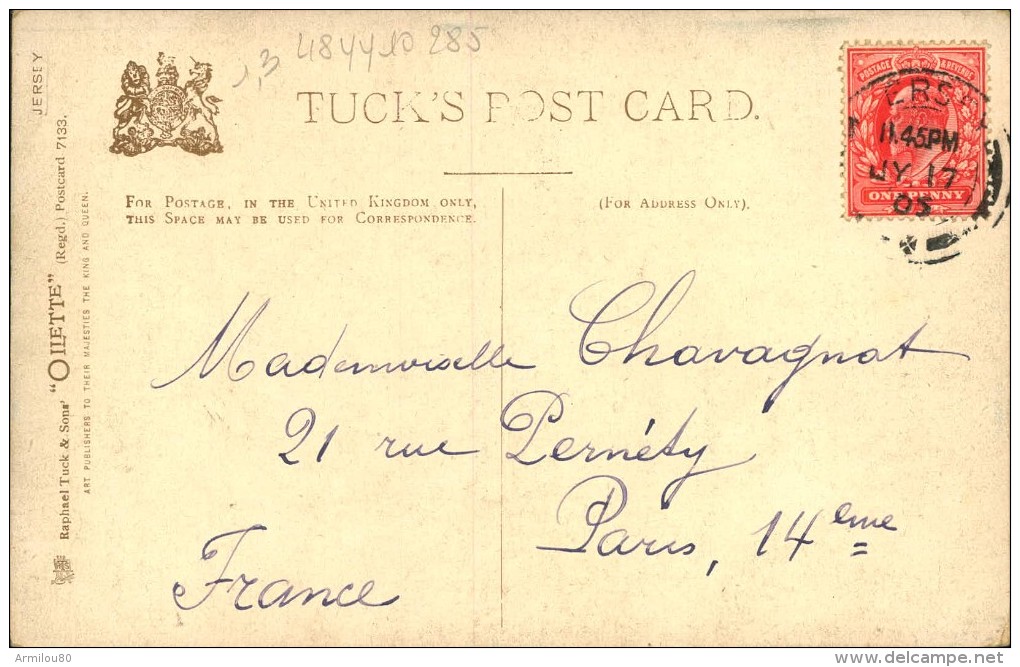 1,3 4844 10 285
TUCK'S POST CARD.
FOR POSTAGE, IN THE UNITED KINGDOM ONLY,
THIS SPACE MAY BE USED FOR CORRESPONDENCE.
(FOR ADDRESS ONLY).
POSTAGE & REVENUE
ONE PENNY
ERSE
11.45PM
JY 17
05
Mademoiselle Chavagnat
21 rue Pernéty
Paris, 14 eme
France
JERSEY
Raphael Tuck & Sons' "OILETTE" (Regd.) Postcard 7133.
ART PUBLISHERS TO THEIR MAJESTIES THE KING AND QUEEN.
Armilou80
www.delcampe.net